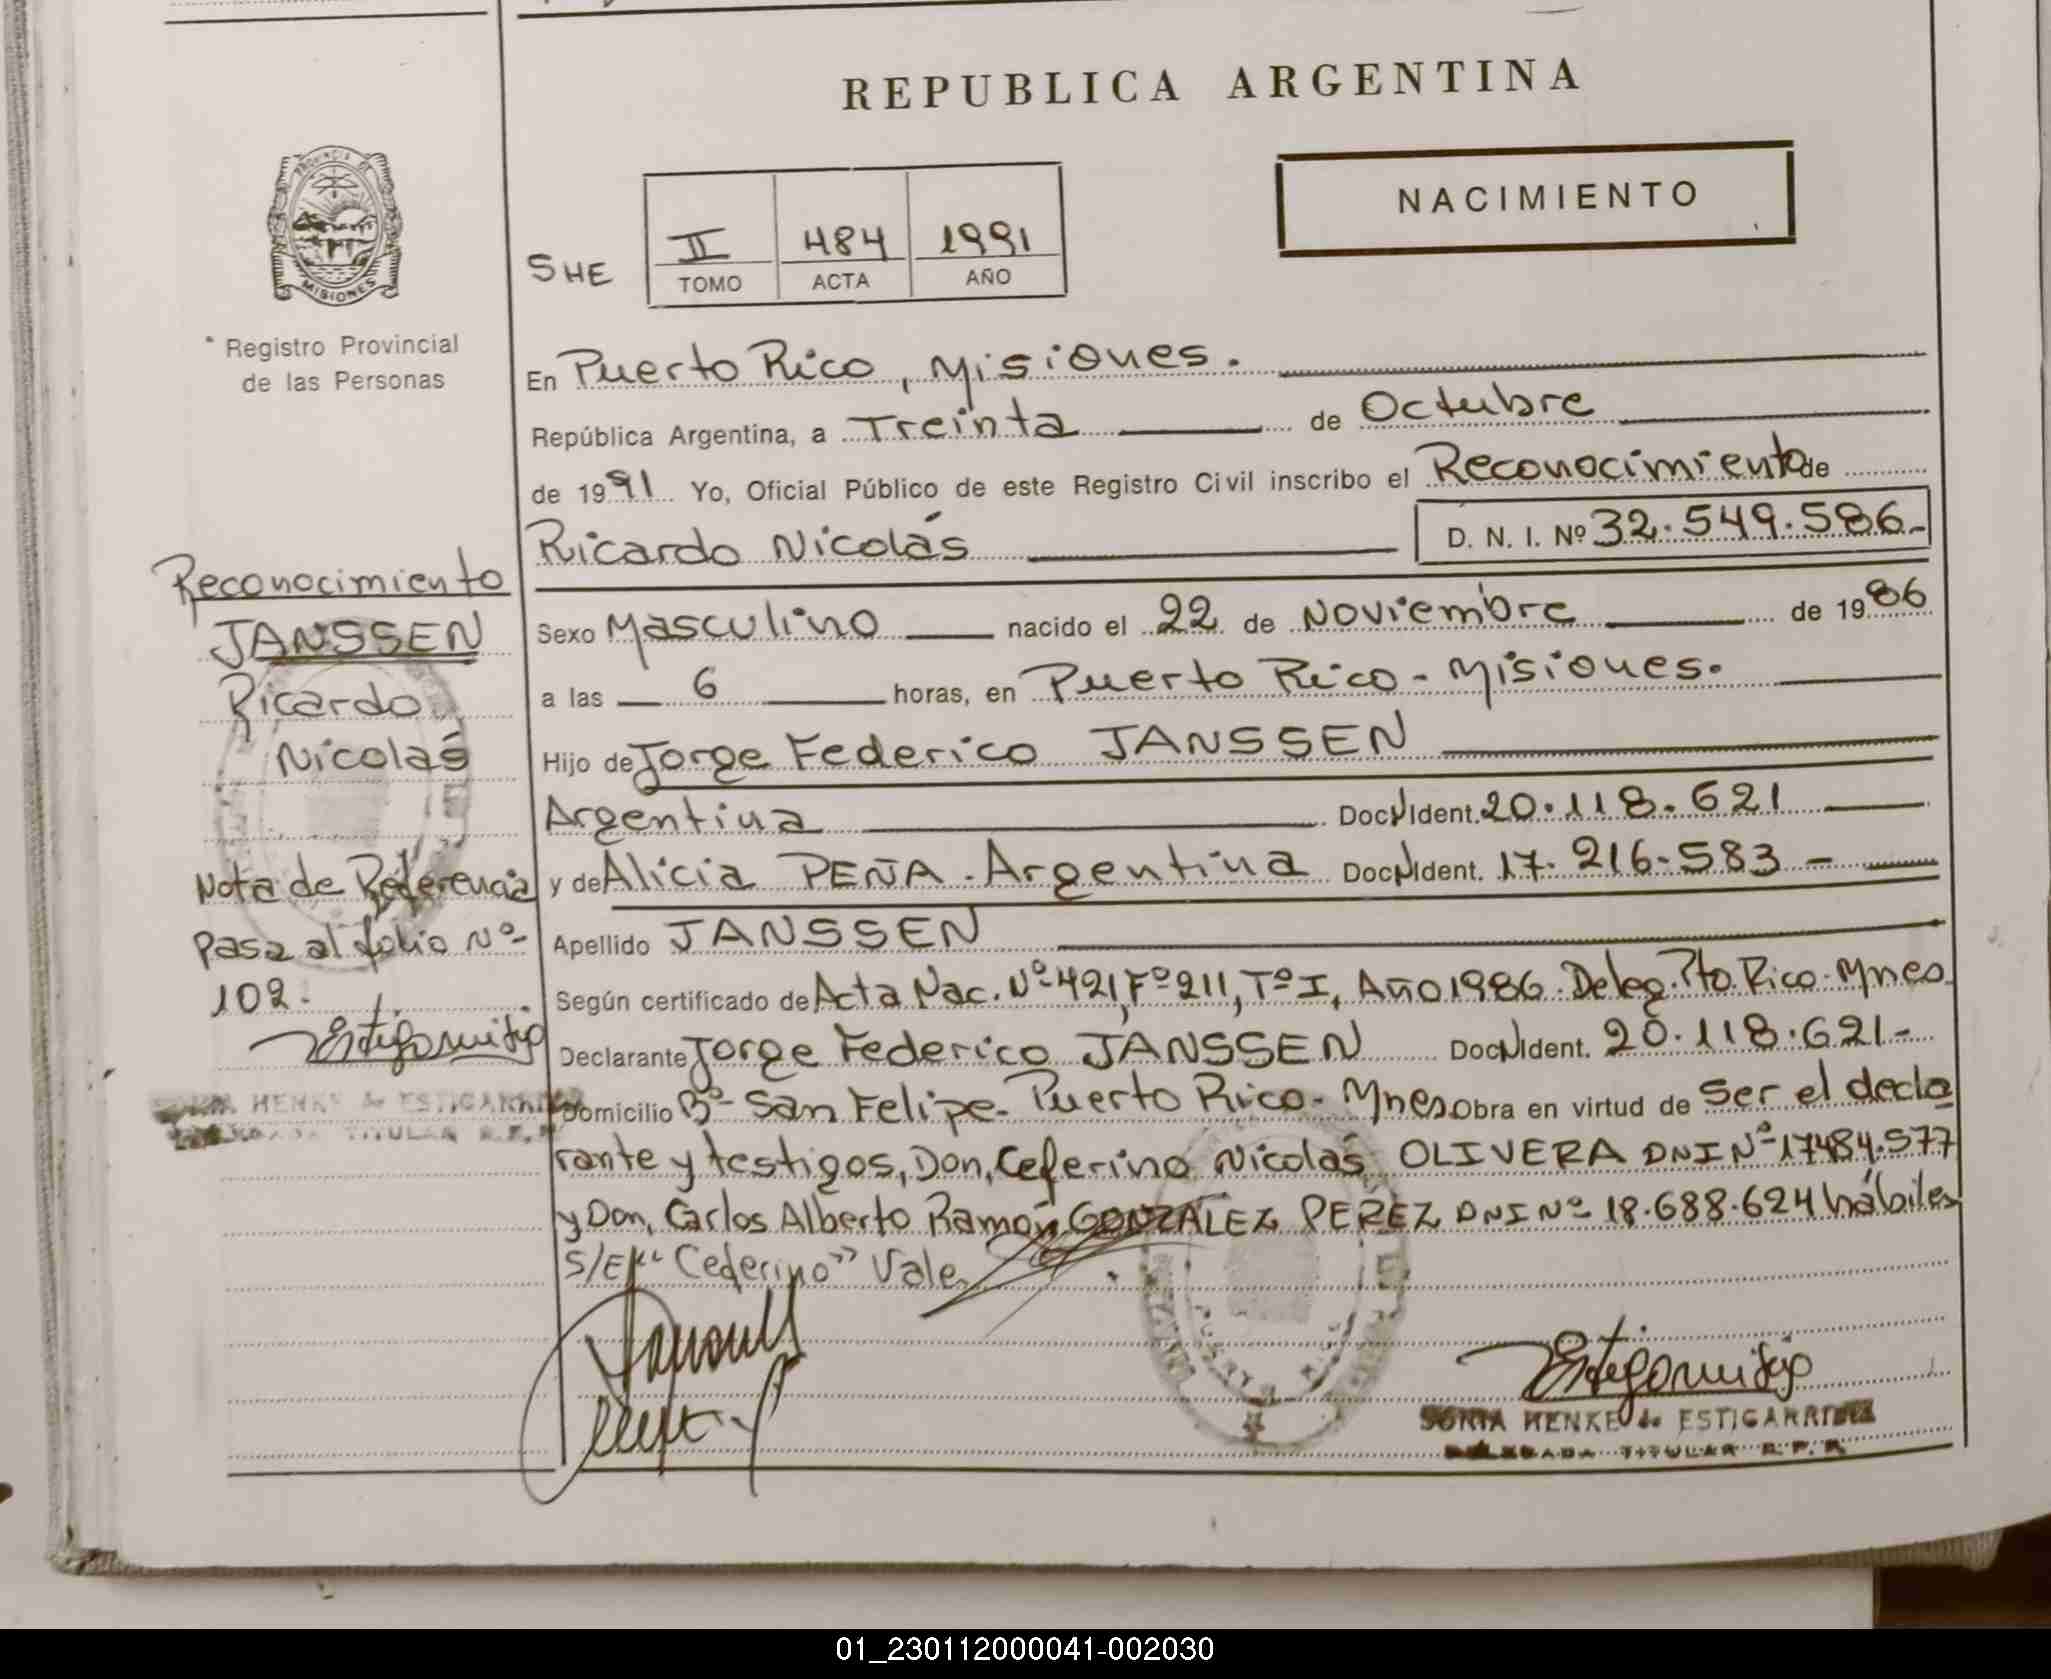 REPUBLICA ARGENTINA
NACIMIENTO
PROVINCIA DE
MISIONES
SHE
II 484 1991
TOMO ACTA AÑO
Registro Provincial
de las Personas
En Puerto Rico, Misiones.
República Argentina, a Treinta de Octubre
de 1991 Yo, Oficial Público de este Registro Civil inscribo el Reconocimiento de
Ricardo Nicolás D. N. I. Nº 32.549.586.-
Sexo Masculino nacido el 22 de Noviembre de 1986
a las 6 horas, en Puerto Rico - Misiones.
Hijo de Jorge Federico JANSSEN
Argentina Doc. Ident. 20.118.621
y de Alicia PEÑA. Argentina Doc. Ident. 17.216.583 -
Apellido JANSSEN
Según certificado de Acta Nac. Nº 421, Fº 211, Tº I, Año 1986. Deleg. Pto. Rico. Mnes.
Declarante Jorge Federico JANSSEN Doc. Ident. 20.118.621-
Domicilio Bº San Felipe. Puerto Rico - Mnes. Obra en virtud de ser el decla
rante y testigos, Don, Ceferino Nicolás OLIVERA DNI Nº 17484.577
y Don, Carlos Alberto Ramón GONZALEZ PEREZ DNI Nº 18.688.624 hábiles
S/E "Ceferino" Vale.
Reconocimiento
JANSSEN
Ricardo
Nicolás
Nota de Referencia
Pasa al folio Nº
102.
HENKE de ESTIGARRIBIA
TITULAR R.P.P.
SONIA HENKE de ESTIGARRIBIA
DELEGADA TITULAR R.P.P.
01_230112000041-002030